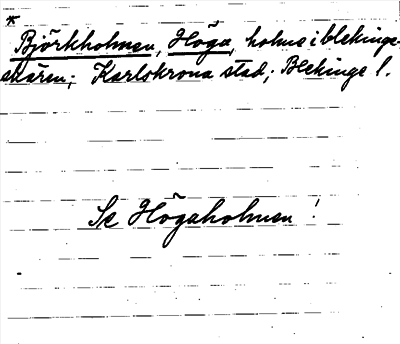 *
Björkholmen, Höga, holme i blekinge-
skären; Karlskrona stad; Blekinge l.
Se Högaholmen!